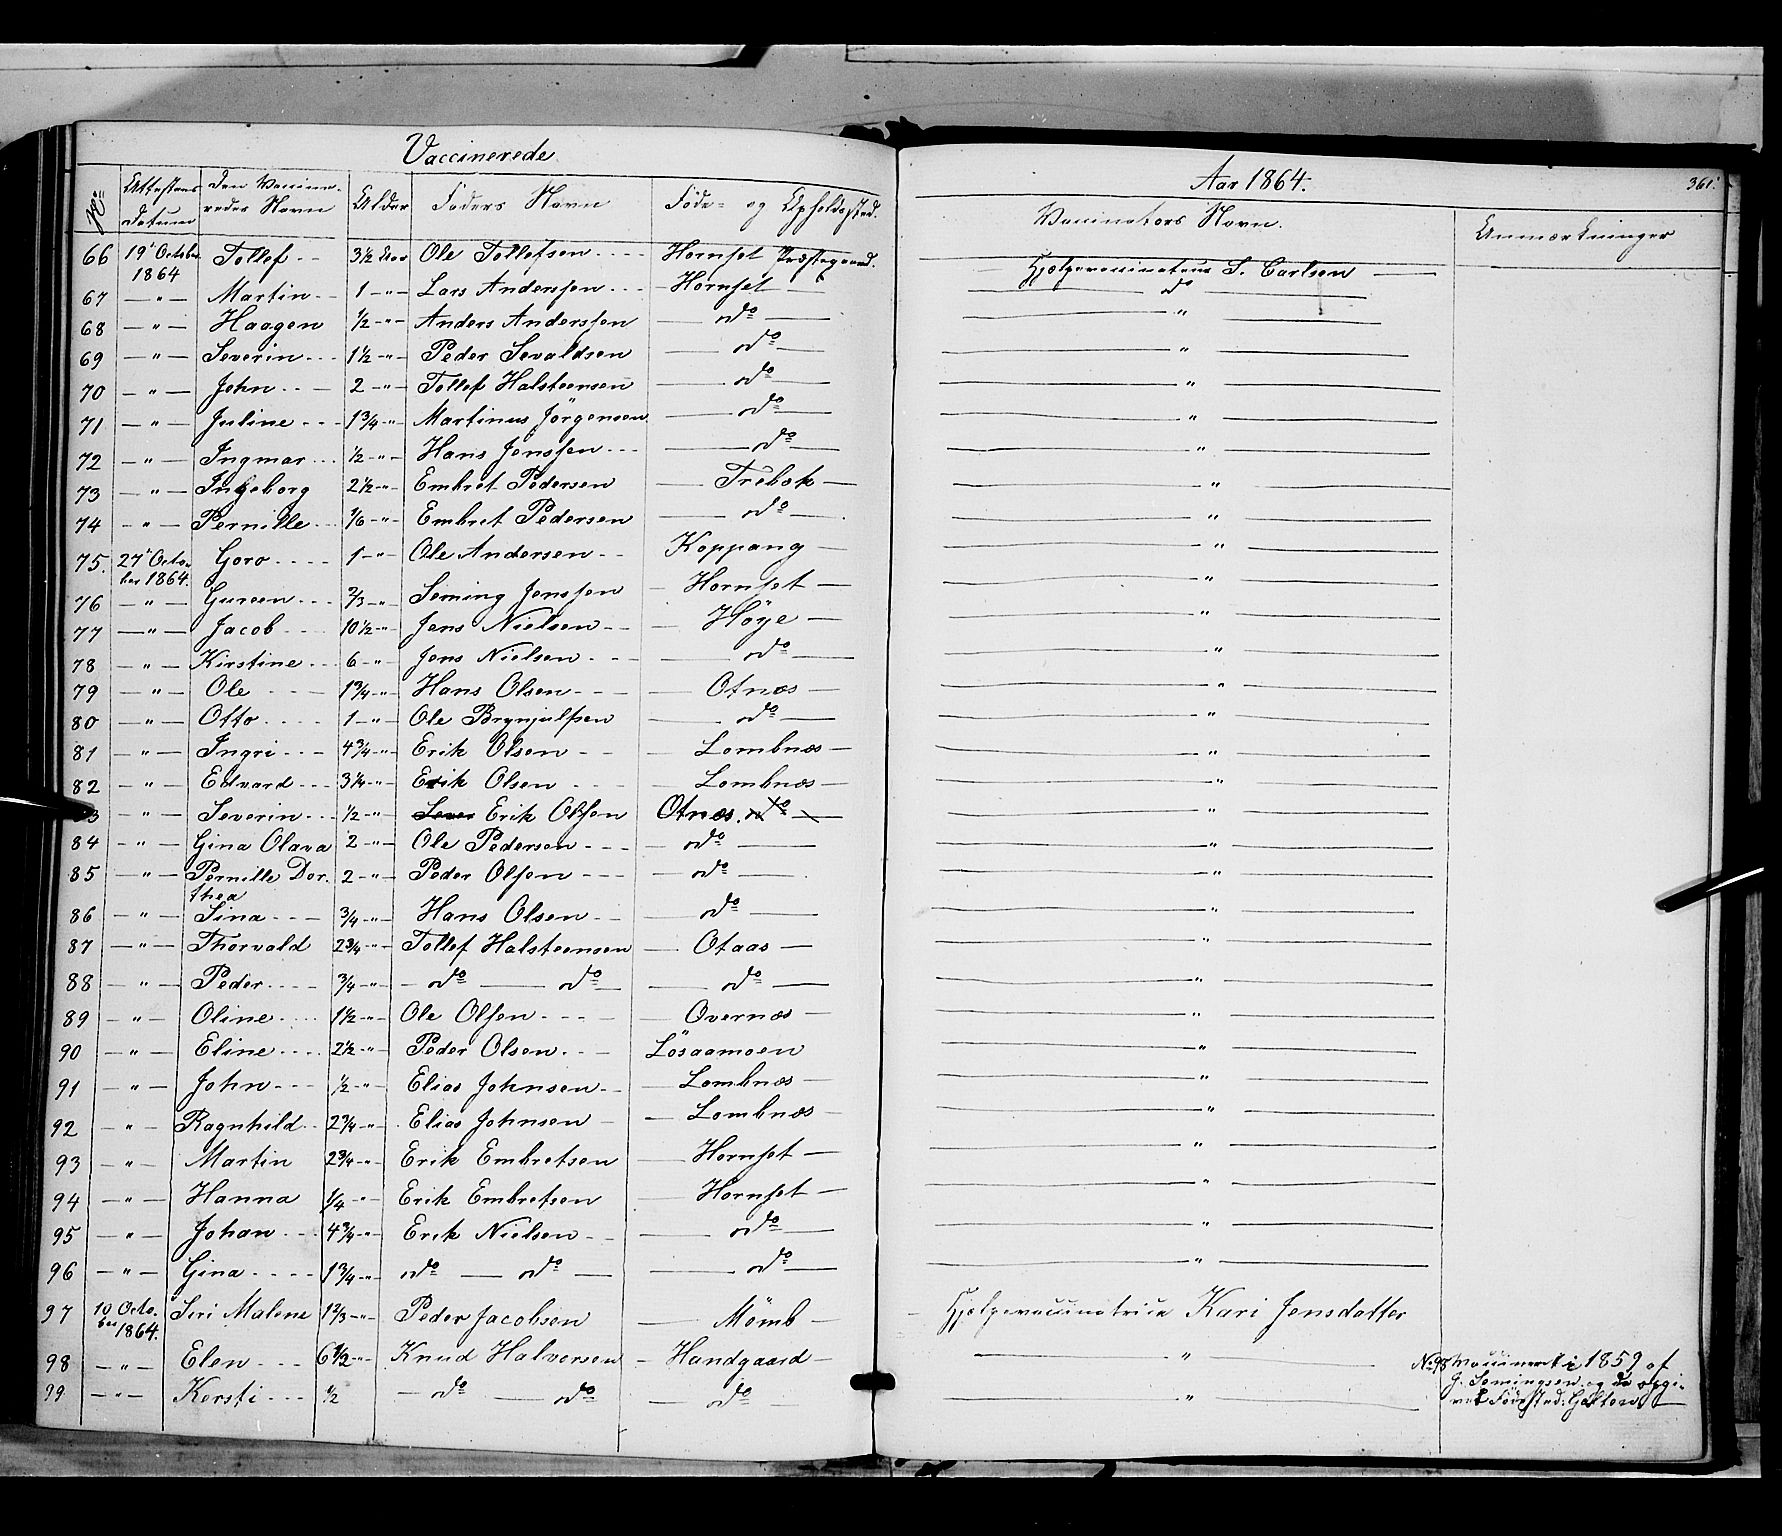 Vaccinerede
Aar 1864. 361.
No: Attestens Datum Den Vaccineredes Navn Alder Faders Navn Føde- og Opholdssted. Vaccinators Navn. Anmærkninger
66 19de Octobr. 1864 Tollef 3½ Aar Ole Tollefsen Hornset Præstegaard. Hjælpevaccinateur S. Carlsen
67 — " — Martin 1 — " Lars Anderssen Hornset do
68 — " — Haagen ½ — " Anders Anderssen do "
69 — " — Severin 1½ — " Peder Sevaldsen do "
70 — " — John 2 — " Tollef Halsteensen do "
71 — " — Juline 1¾ — " Martinus Jörgensen do "
72 — " — Ingmar ½ — " Hans Jenssen do "
73 — " — Ingeborg 2½ — " Embret Pedersen Trebæk "
74 — " — Pernille 1/6 — " Embret Pedersen do "
75. 27de October 1864. Goro 1 — " Ole Andersen Koppang "
76 — " — Gureen ⅔ — " Seming Jenssen Hornset "
77 — " — Jacob 10½ — " Jens Nielsen Höye "
78 — " — Kirstine 6 — " Jens Nielsen do "
79 — " — Ole 1¾ — " Hans Olsen Otnæs "
80 — " — Otto 1 — " Ole Brynjulfsen do "
81 — " — Ingri 4¾ — " Erik Olsen Lombnæs "
82 — " — Edvard 3¼ — " Erik Olsen Lombnæs "
83 — " — Severin ½ — " Sever Erik Olssen Otnæs. do "
84 — " — Gina Olava 2 — " Ole Pedersen do "
85 — " — Pernille Dorthea 2 — " Peder Olsen do "
86 — " — Sina ¾ — " Hans Olsen do "
87 — " — Thorvald 2¾ — " Tollef Halsteensen Otaas "
88 — " — Peder ¾ — " do do do "
89 — " — Oline 1½ — " Ole Olsen Overnæs "
90 — " — Eline 2½ — " Peder Olsen Lösaamoen "
91 — " — John ½ — " Elias Johnsen Lombnæs "
92 — " — Ragnhild 2¾ — " Elias Johnsen Lombnæs "
93 — " — Martin 2¾ — " Erik Embretsen Hornset "
94 — " — Hanna ¼ — " Erik Embretsen Hornset "
95 — " — Johan 4¾ — " Erik Nielsen do "
96 — " — Gina 1¾ — " do do do "
97 10 October 1864. Siri Malene 1⅔ — " Peder Jacobsen Mömb Hjælpevaccinatrice Kari Jensdatter
98 — " — Elen 6½ — " Knud Halvorsen Handgaard " No 98 Vaccineret i 1859 af
99 — " — Kersti ½ do do do " G. Semingsen og da opgi-
vet Födested: